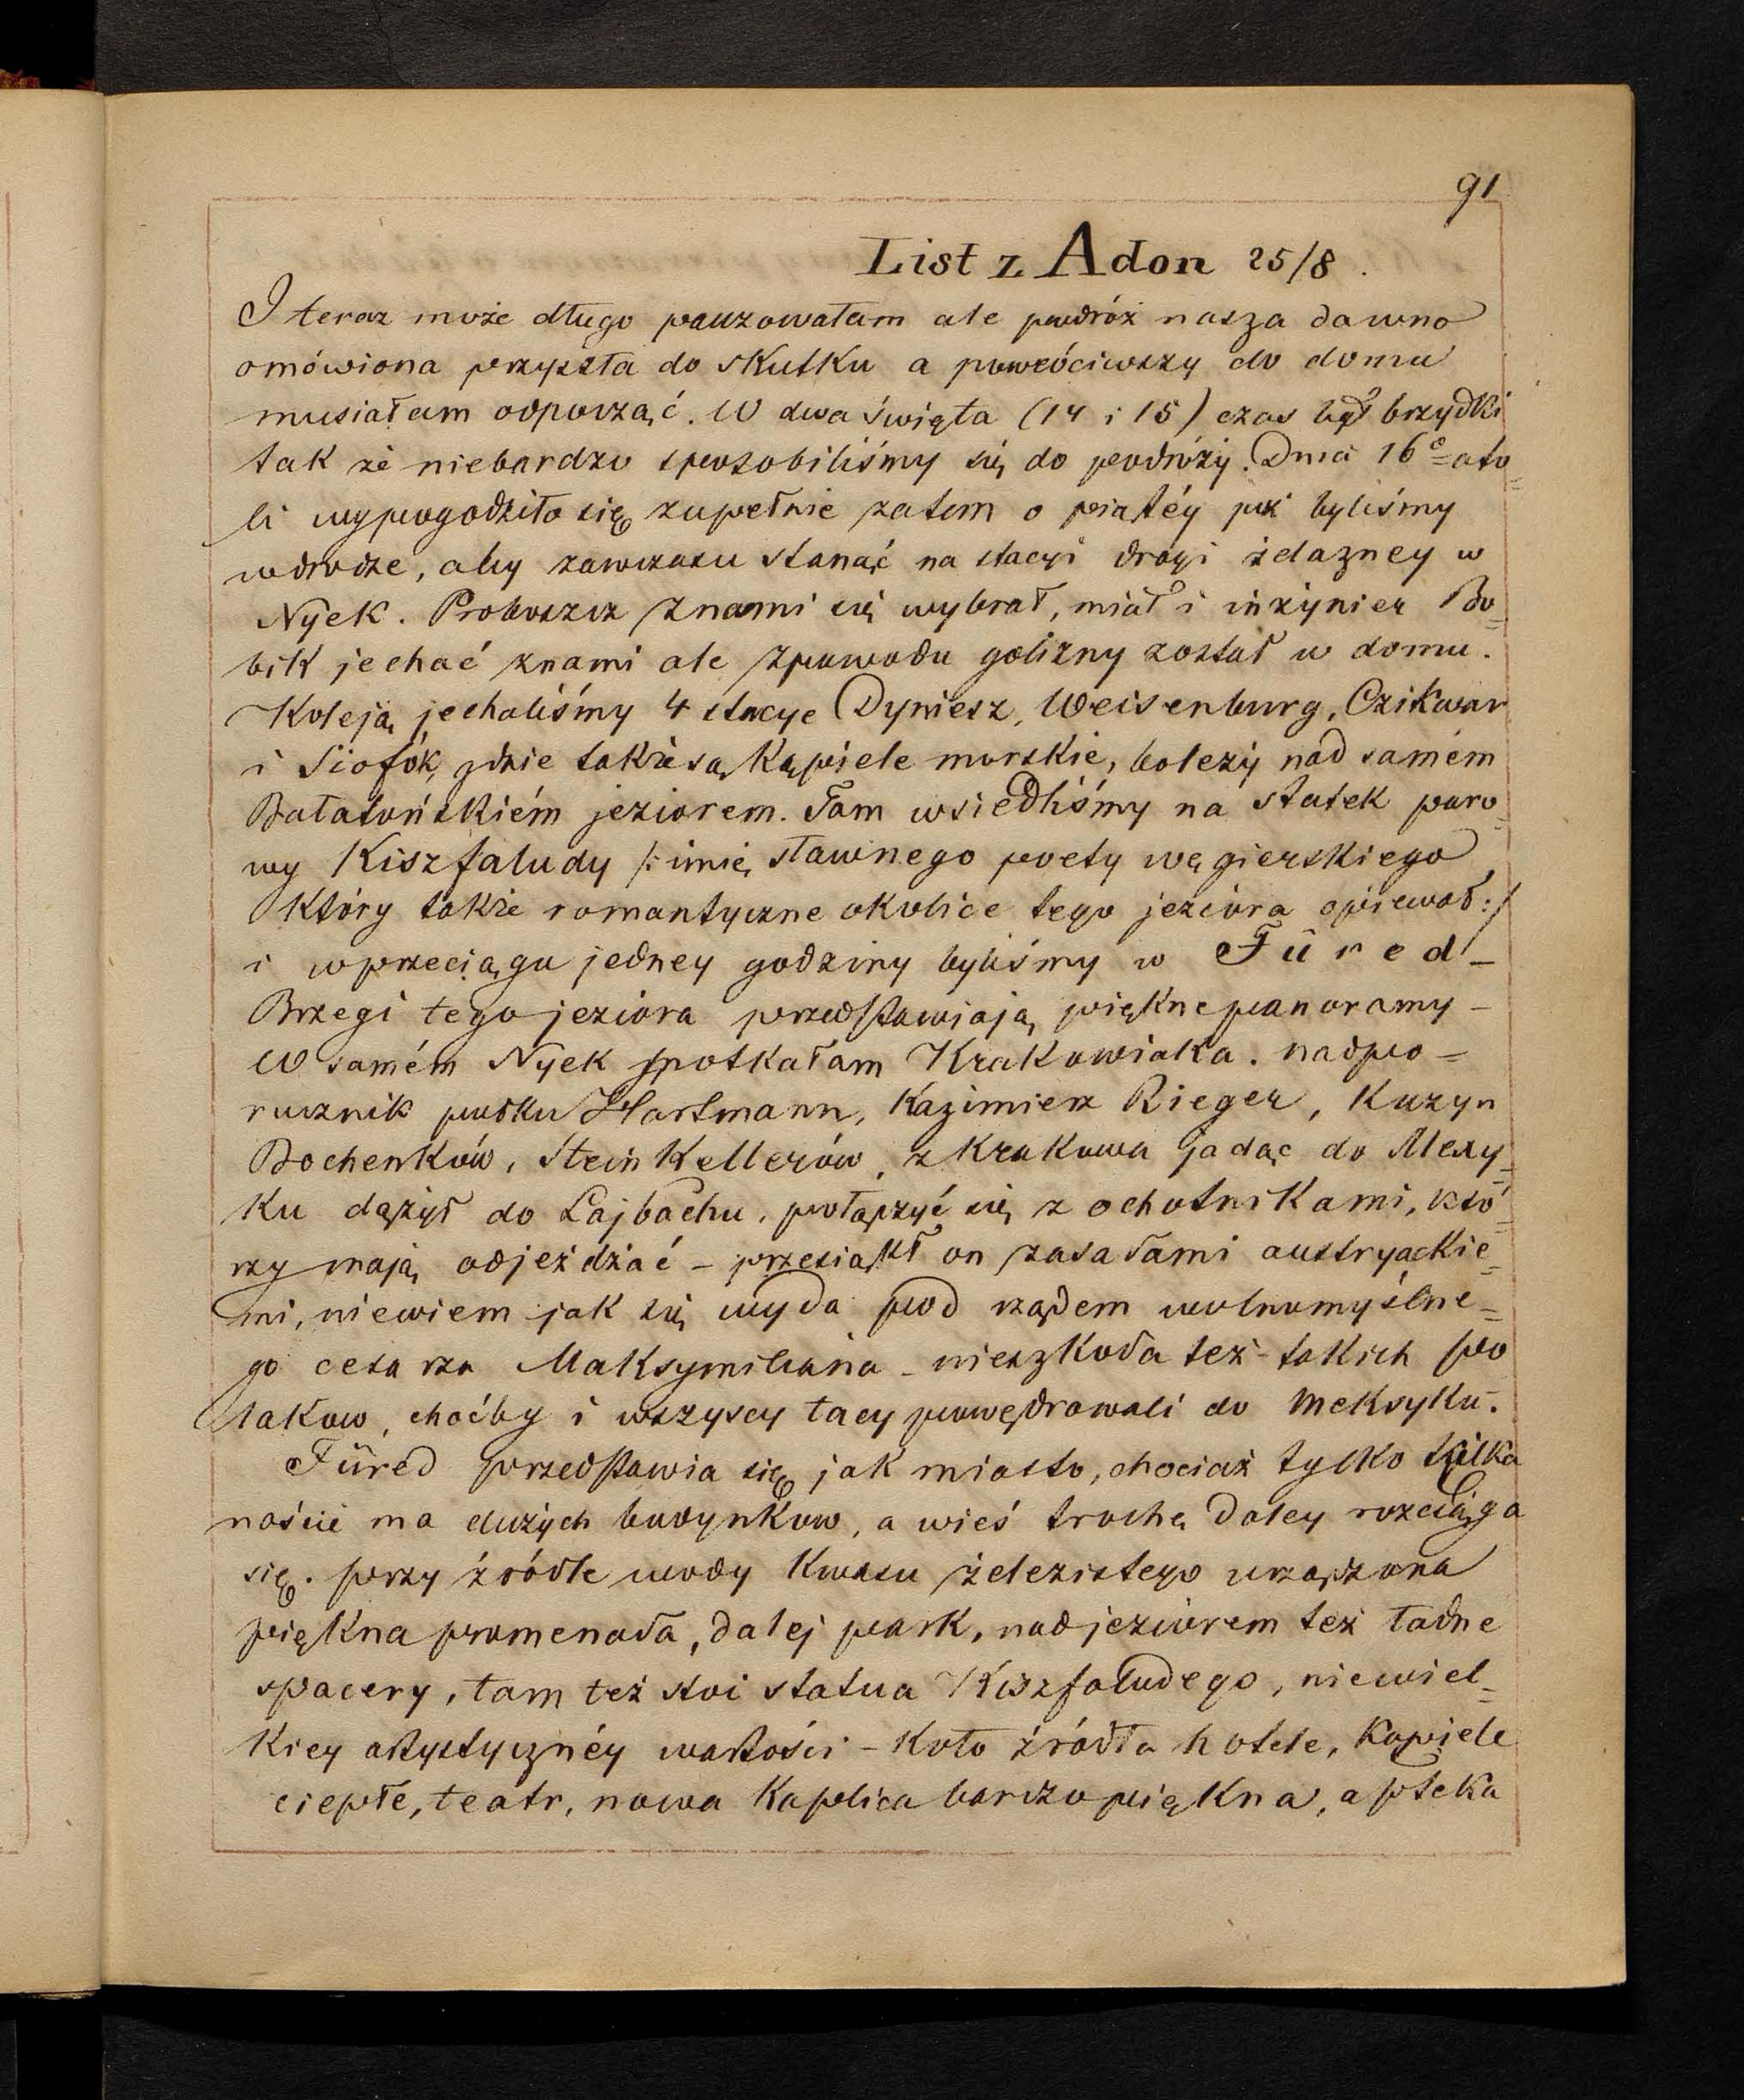 91
List z Adon 25/8.
I teraz może długo pauzowałam ale podróż nasza dawno
omówiona przyszła do skutku a powróciwszy do domu
musiałam odpocząć. W dwa święta (14 i 15) czas był brzydki
tak że niebardzo sposobiliśmy się do podróży. Dnia 16º= ato
li wypogodziło się zupełnie zatem o piątéy już byliśmy
wdrodze, aby zawczasu stanąć na stacyi drogi żelazney w
Nyek. Proboszcz znami się wybrał, miał i inżynier Bo=
bik jechać znami ale zpowodu golizny został w domu.
Koleją jechaliśmy 4 stacye Dyniesz, Weisenburg, Czikwar
i Siofók, gdzie także są kąpiele morskie, boleży nad samém
Bałatońskiém jeziorem. Tam wsiedliśmy na statek paro=
wy Kiszfaludy /: imię sławnego poety węgierskiego
który także romantyczne okolice tego jeziora opiewał :/
i wprzeciągu jedney godziny byliśmy w Füred –
Brzegi tego jeziora przedstawiają piękne panoramy –
W samém Nyek spotkałam Krakowiaka. nadpo=
rucznik pułku Hartmann, Kazimierz Rieger, kuzyn
Bochenków, Steinkellerów, z Krakowa jadąc do Mexy=
ku dążył do Lajbachu, połączyć się z ochotnikami, któ=
rzy mają odjeżdżać – przesiąkł on zasadami austryackie=
mi, niewiem jak się wyda pod rządem wolnomyślne=
go cesarza Maksymiliana – nieszkoda też takich po
lakow, choćby i wszyscy tacy powędrowali do Meksyku.
Füred przedstawia się jak miasto, chociaż tylko kilka
naście ma dużych budynkow, a wieś trochę daley rozciąga
się. przy źródle wody kwasu żelezistego urządzona
piękna promenada, dalej park, nad jeziorem też ładne
spacery, tam też stoi statua Kiszfaludego, niewiel=
kiey artystycznéy wartości – koło źródła hotele, kąpiele
ciepłe, teatr, nowa kaplica bardzo piękna, apteka